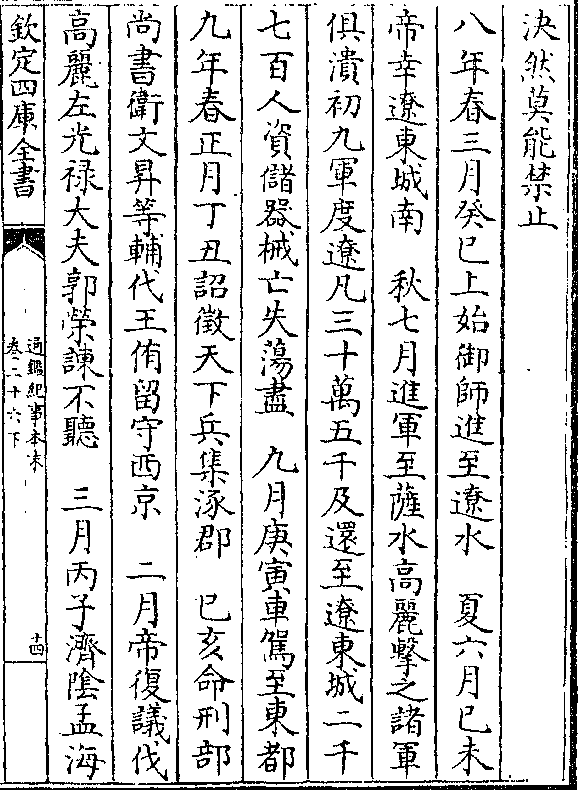 決然莫能禁止
八年春三月癸巳上始御師進至遼水　夏六月巳未
帝幸遼東城南　秋七月進軍至薩水高麗擊之諸軍
俱潰初九軍度遼凡三十萬五千及還至遼東城二千
七百人資儲器械亡失蕩盡　九月庚寅車駕至東都
九年春正月丁丑詔徵天下兵集涿郡　巳亥命刑部
尚書衛文昇等輔代王侑留守西京　二月帝復議伐
高麗左光禄大夫郭榮諫不聽　三月丙子濟陰孟海
欽定四庫全書
通鑑紀事本末
卷二十六下
十四